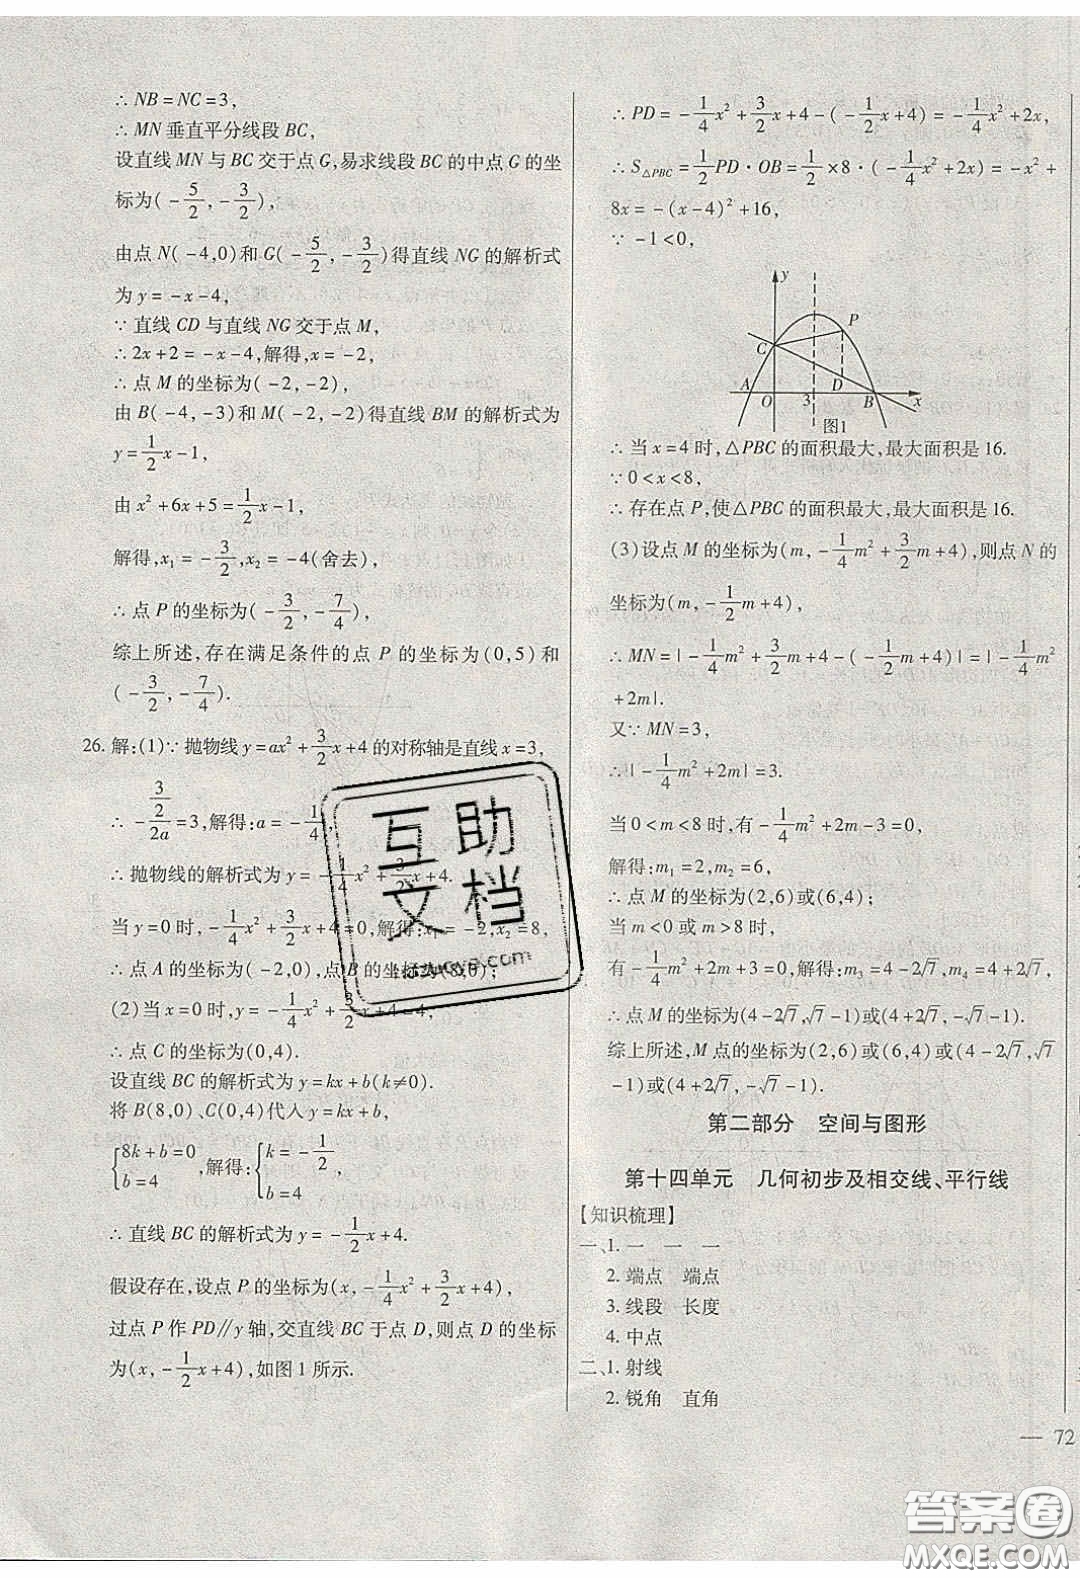 ∴ NB=NC=3,
∴ MN 垂直平分线段 BC,
设直线 MN 与 BC 交于点 G,易求线段 BC 的中点 G 的坐
标为(-5/2,-3/2),
由点 N(-4,0)和 G(-5/2,-3/2)得直线 NG 的解析式
为 y=-x-4,
∵ 直线 CD 与直线 NG 交于点 M,
∴ 2x+2=-x-4,解得,x=-2,
∴ 点 M 的坐标为(-2,-2),
由 B(-4,-3)和 M(-2,-2)得直线 BM 的解析式为
y=1/2x-1,
由 x²+6x+5=1/2x-1,
解得,x₁=-3/2,x₂=-4(舍去),
∴ 点 P 的坐标为(-3/2,-7/4),
综上所述,存在满足条件的点 P 的坐标为(0,5)和
(-3/2,-7/4).
26. 解:(1)∵ 抛物线 y=ax²+3/2x+4 的对称轴是直线 x=3,
∴ -(3/2)/2a=3,解得:a=-1/4,
∴ 抛物线的解析式为 y=-1/4x²+3/2x+4.
当 y=0 时,-1/4x²+3/2x+4=0,解得:x₁=-2,x₂=8,
∴ 点 A 的坐标为(-2,0),点 B 的坐标为(8,0);
(2)当 x=0 时,y=-1/4x²+3/2x+4=4,
∴ 点 C 的坐标为(0,4).
设直线 BC 的解析式为 y=kx+b(k≠0).
将 B(8,0)、C(0,4)代入 y=kx+b,
{8k+b=0 b=4 ,解得:{k=-1/2, b=4
∴ 直线 BC 的解析式为 y=-1/2x+4.
假设存在,设点 P 的坐标为(x,-1/4x²+3/2x+4),
过点 P 作 PD∥y 轴,交直线 BC 于点 D,则点 D 的坐标
为(x,-1/2x+4),如图 1 所示.
∴ PD=-1/4x²+3/2x+4-(-1/2x+4)=-1/4x²+2x,
∴ S△PBC=1/2PD·OB=1/2×8·(-1/4x²+2x)=-x²+
8x=-(x-4)²+16,
∵ -1<0,
y
P
C
A
O
3
D
B
x
图1
∴ 当 x=4 时,△PBC 的面积最大,最大面积是 16.
∵ 0<x<8,
∴ 存在点 P,使△PBC 的面积最大,最大面积是 16.
(3)设点 M 的坐标为(m,-1/4m²+3/2m+4),则点 N 的
坐标为(m,-1/2m+4),
∴ MN=|-1/4m²+3/2m+4-(-1/2m+4)|=|-1/4m²
+2m|.
又∵ MN=3,
∴|-1/4m²+2m|=3.
当 0<m<8 时,有-1/4m²+2m-3=0,
解得:m₁=2,m₂=6,
∴ 点 M 的坐标为(2,6)或(6,4);
当 m<0 或 m>8 时,
有-1/4m²+2m+3=0,解得:m₃=4-2√7,m₄=4+2√7,
∴ 点 M 的坐标为(4-2√7,√7-1)或(4+2√7,-√7-1).
综上所述,M 点的坐标为(2,6)或(6,4)或(4-2√7,√7
-1)或(4+2√7,-√7-1).
第二部分 空间与图形
第十四单元 几何初步及相交线、平行线
【知识梳理】
一、1. 一 一 一
2. 端点 端点
3. 线段 长度
4. 中点
二、1. 射线
2. 锐角 直角
— 72
互助
文档
答案圈
MXQE.COM